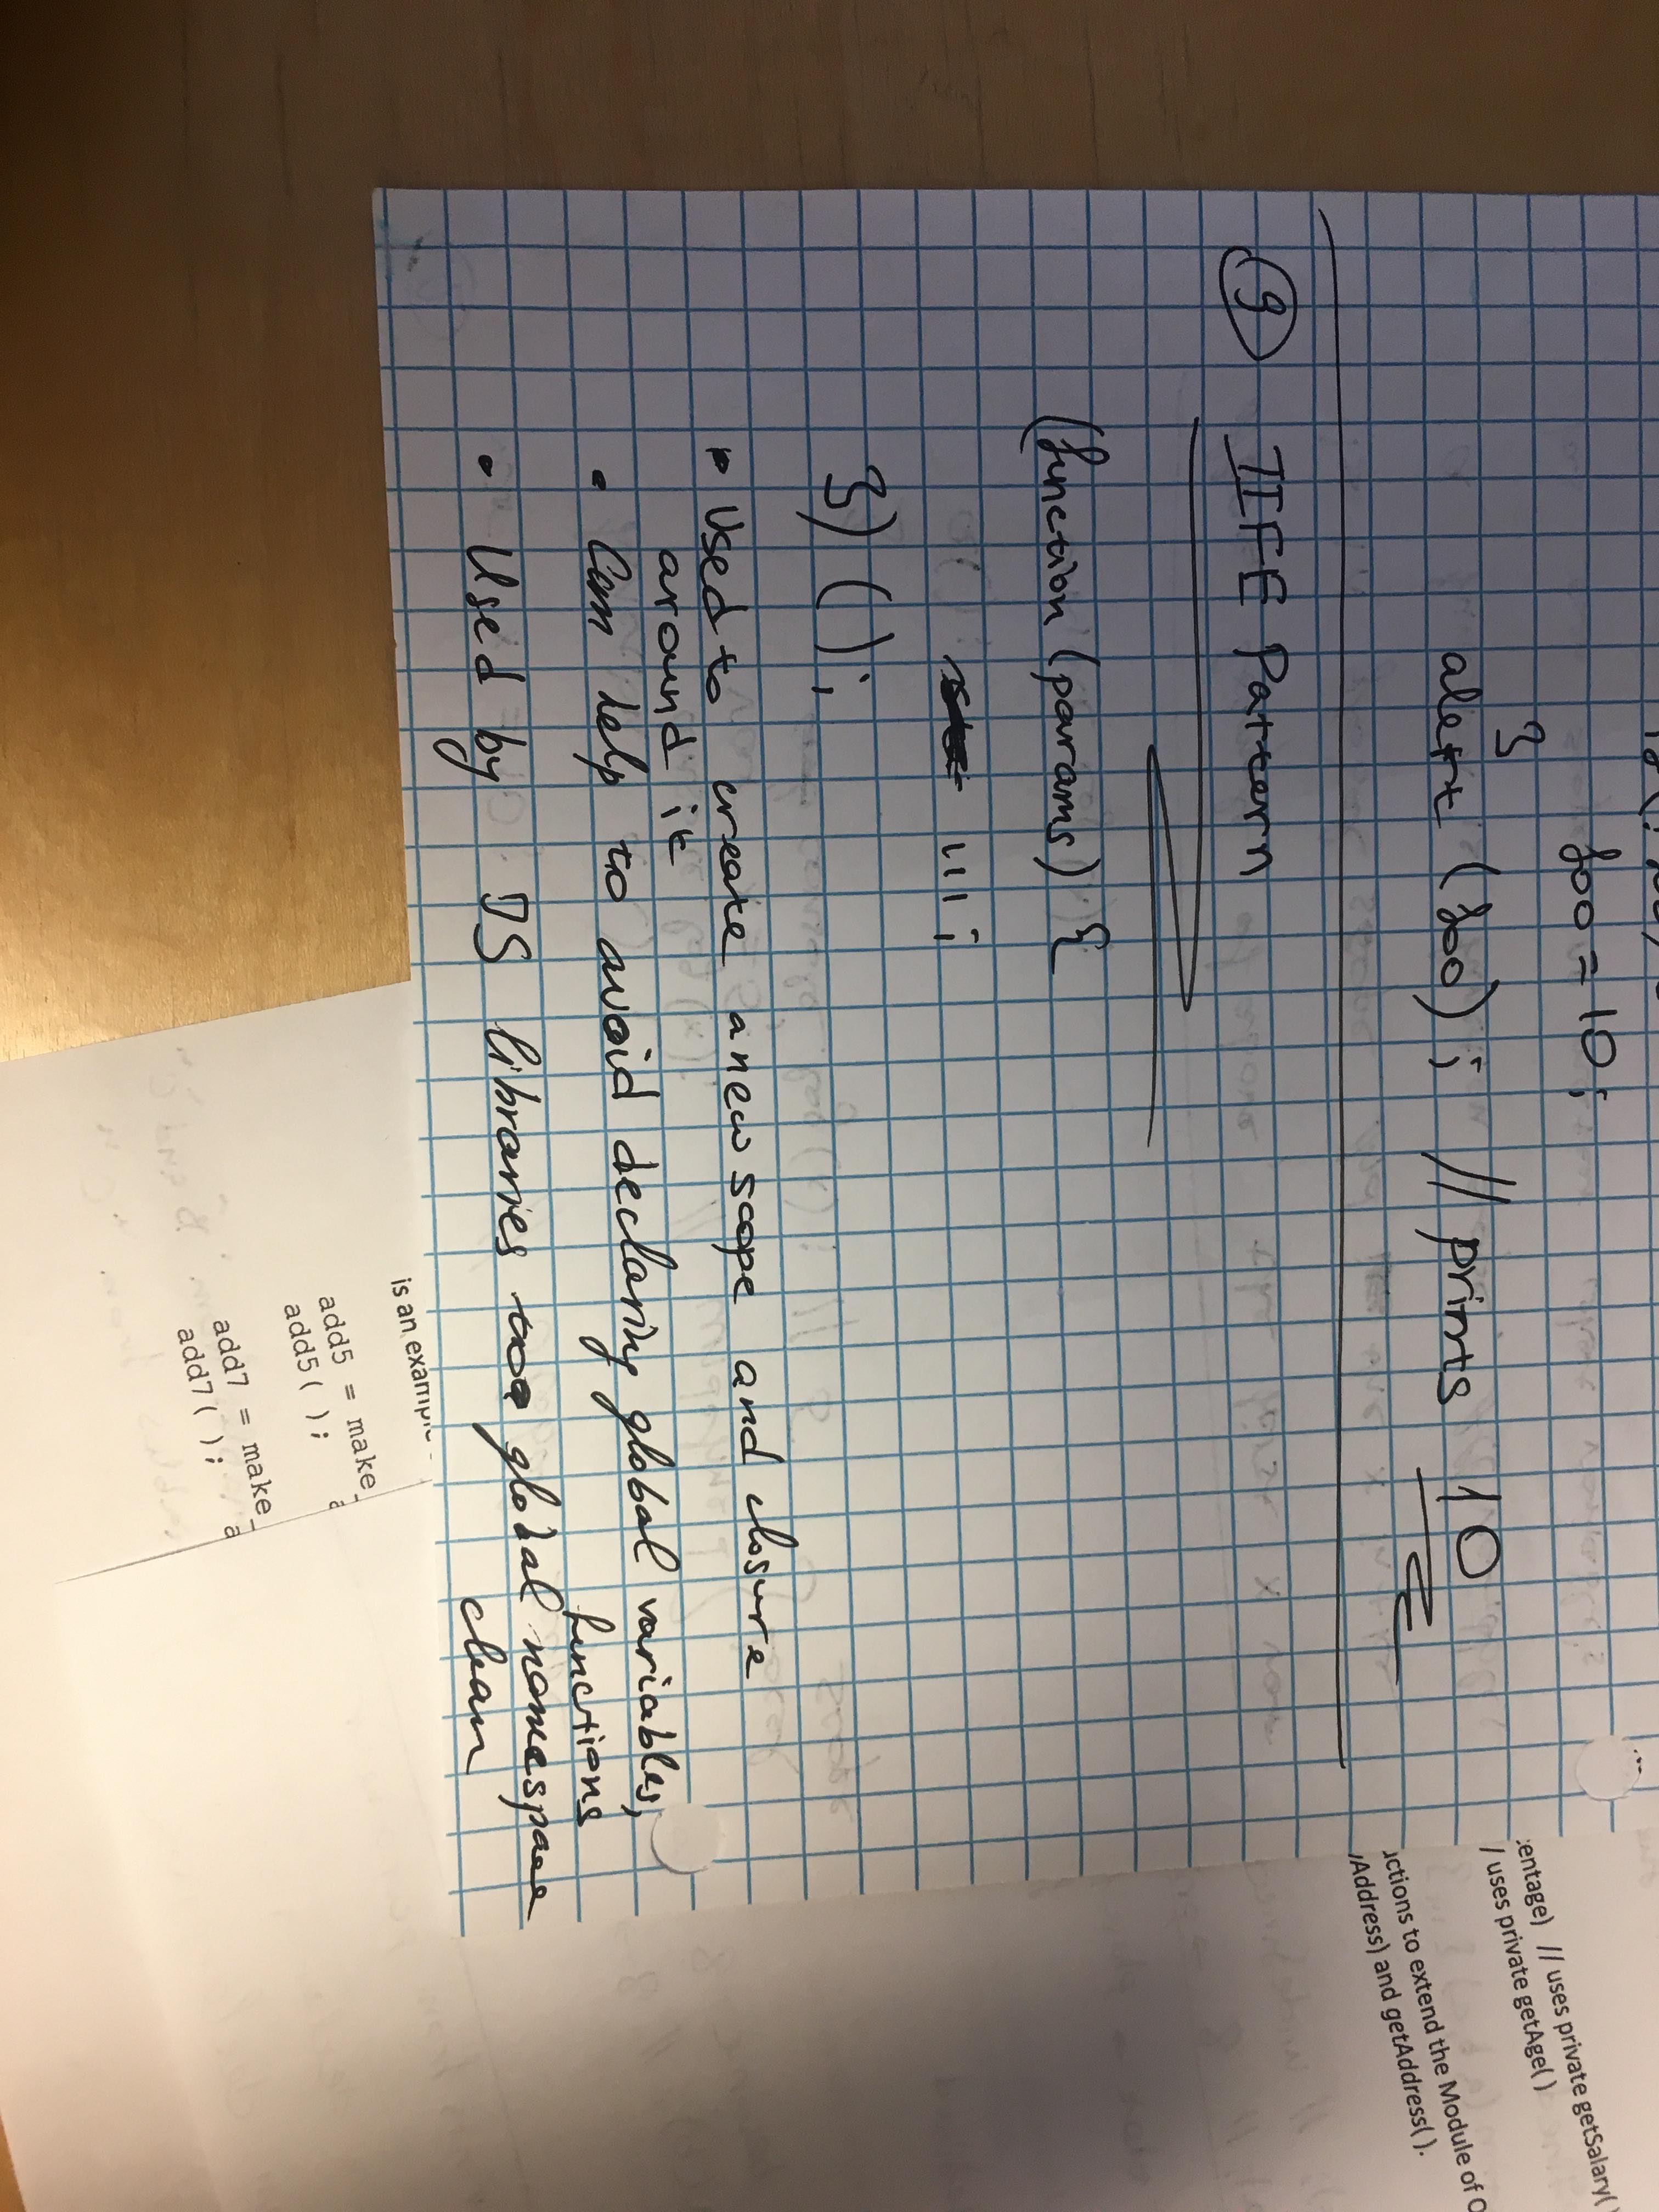 foo = 10;
}
alert (foo); // prints 10
9 IIFE Pattern
(function (params) {
''' ;
}) ();
• Used to create a new scope and closure
around it
• Can help to avoid declaring global variables,
functions
• Used by JS libraries global namespace
clean
entage) // uses private getSalary(
/ uses private getAge( )
ctions to extend the Module of
Address) and getAddress( ).
is an example
add5 = make_a
add5 ( );
add7 = make_a
add7 ( );